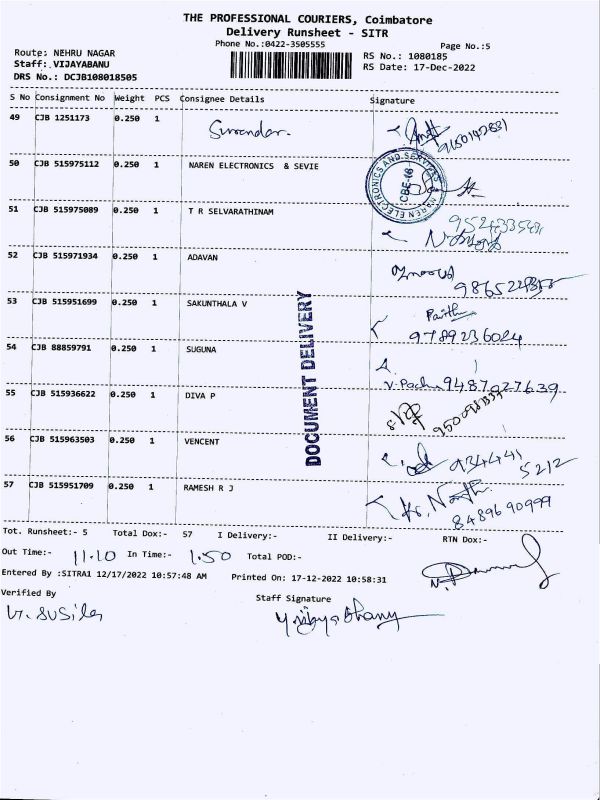 THE PROFESSIONAL COURIERS, Coimbatore
Delivery Runsheet - SITR
Phone No.:0422-3505555
Page No.:5
Route: NEHRU NAGAR
RS No.: 1080185
Staff: VIJAYABANU
RS Date: 17-Dec-2022
DRS No.: DCJB108018505
S No Consignment No Weight PCS Consignee Details Signature
49 CJB 1251173 0.250 1 Surendar.
50 CJB 515975112 0.250 1 NAREN ELECTRONICS & SEVIE
NAREN ELECTRONICS AND SERVICES
51 CJB 515975089 0.250 1 T R SELVARATHINAM
52 CJB 515971934 0.250 1 ADAVAN
53 CJB 515951699 0.250 1 SAKUNTHALA V
9789236024
54 CJB 88859791 0.250 1 SUGUNA
9487027639
55 CJB 515936622 0.250 1 DIVA P
56 CJB 515963503 0.250 1 VENCENT
5212
57 CJB 515951709 0.250 1 RAMESH R J
8489690999
DOCUMENT DELIVERY
Tot. Runsheet:- 5 Total Dox:- 57 I Delivery:- II Delivery:- RTN Dox:-
Out Time:- 11.10 In Time:- 1.50 Total POD:-
Entered By :SITRA1 12/17/2022 10:57:48 AM Printed On: 17-12-2022 10:58:31
Verified By
Staff Signature